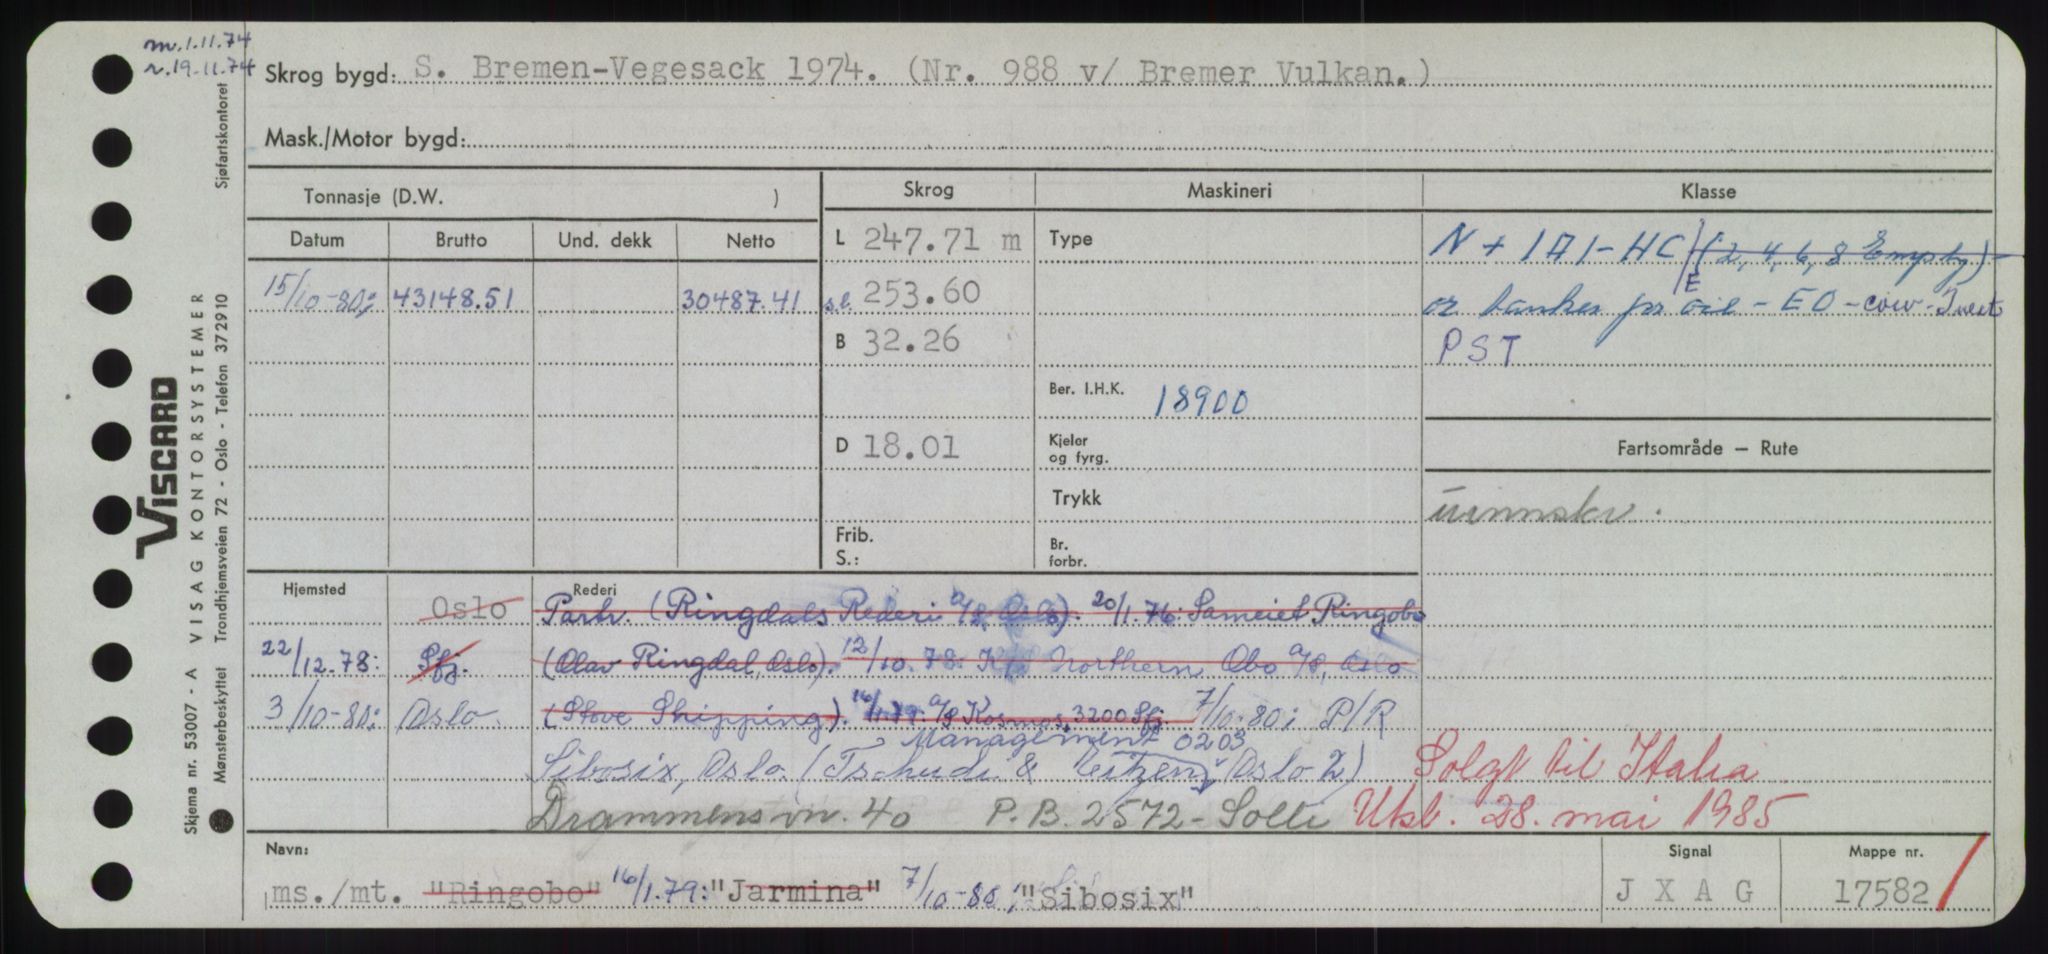 m. 1.11.74
r. 19.11.74
Skrog bygd: S. Bremen-Vegesack 1974. (Nr. 988 v/ Bremer Vulkan.)
Mask./Motor bygd:
Tonnasje (D.W. ) Skrog Maskineri Klasse
Datum Brutto Und. dekk Netto L 247.71 m Type N + 1A1-HC/E (2,4,6,8 Empty)-
15/10-80; 43148.51 30487.41 s.l. 253.60 or tanker for oil - EO - cow - Inert
B 32.26 PST
Ber. I.H.K. 18900
D 18.01 Kjeler og fyrg. Fartsområde — Rute
Trykk uinnskr.
Frib. S.: Br. forbr.
Hjemsted Rederi
Oslo Partr. (Ringdals Rederi A/S, Oslo). 20/1.76: Sameiet Ringobo
22/12.78: Sfj. (Olav Ringdal, Oslo). 12/10.78: Northern Obo A/S, Oslo
3/10-80; Oslo. (Stove Shipping). 16/1.79: A/S Kosmos, 3200 Sfj. 7/10-80; P/R
Management 0203
Sibosix, Oslo. (Tschudi & Eitzen, Oslo 2) Solgt til Italia.
Drammensvn. 40 P.B. 2572 - Solli Utsl. 28. mai 1985
Navn: Signal Mappe nr.
ms./mt. "Ringobo" 16/1.79: "Jarmina" 7/10-80; "Sibosix" J X A G 17582
Skjema nr. 53007 - A VISAG KONTORSYSTEMER Sjøfartskontoret
VISCARD
Mønsterbeskyttet Trondhjemsveien 72 - Oslo - Telefon 372910